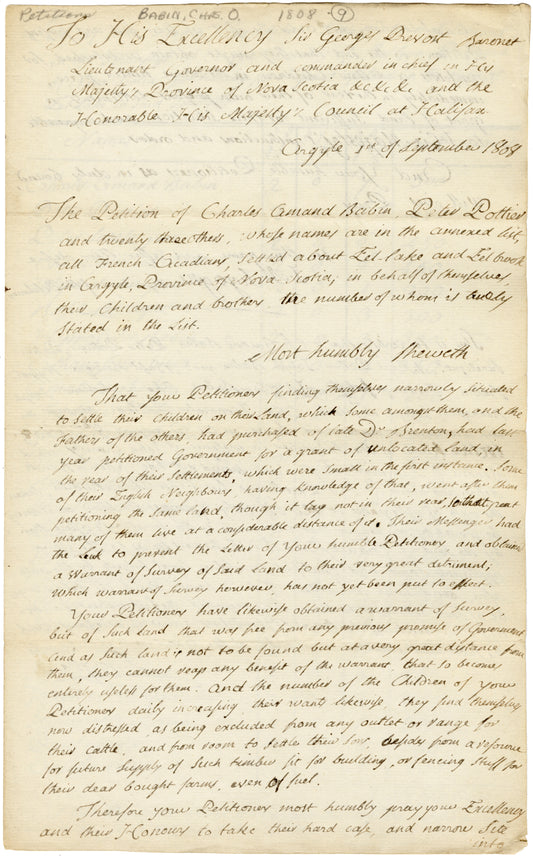 Petitions BABIN, CHAS. O. 1808 - 9
To His Excellency Sir George Prevost Baronet
Lieutenant Governor and commander in chief in His
Majesty's Province of Nova Scotia &c &c &c and the
Honorable His Majesty's Council at Halifax
Argyle 1st of September 1808
The Petition of Charles Amand Babin, Peter Pottier
and twenty three others, whose names are in the annexed list,
all French Accadians, settled about Eel lake and Eel brook
in Argyle, Province of Nova Scotia; in behalf of themselves,
their Children and brothers the number of whom is
stated in the List.
Most humbly Sheweth
That your Petitioners finding themselves narrowly situated
to settle their children on their Land, which some amongst them, and the
Fathers of the others, had purchased of late Dr Brenton, had last
year petitioned Government for a grant of unlocated land, in
the rear of their Settlements, which were small in the first instance. Some
of their English Neighbours having knowledge of that, went after them
petitioning the same land, though it lay not in their rear, so that great
many of them live at a considerable distance of it. Their Messenger had
the Luck to prevent the Letter of Your humble Petitioners and obtained
a Warrant of Survey of said Land to their very great detriment;
which warrant of Survey however, has not yet been put to effect.
Your Petitioners have likewise obtained a warrant of Survey,
but of such land that was free from any previous promise of Government
and as such land is not to be found but at a very great distance from
them, they cannot reap any benefit of the warrant, that so becomes
entirely useless for them. And the number of the Children of your
Petitioners daily increasing their wants likewise, they find themselves
now distressed, as being excluded from any outlet or range for
their cattle, and from room to settle their sons, besides from a resource
for future supply of such timber fit for building, or fencing stuff for
their dear bought farms, even of fuel.
Therefore your Petitioner most humbly pray your Excellency
and their Honours to take their hard case, and narrow
into